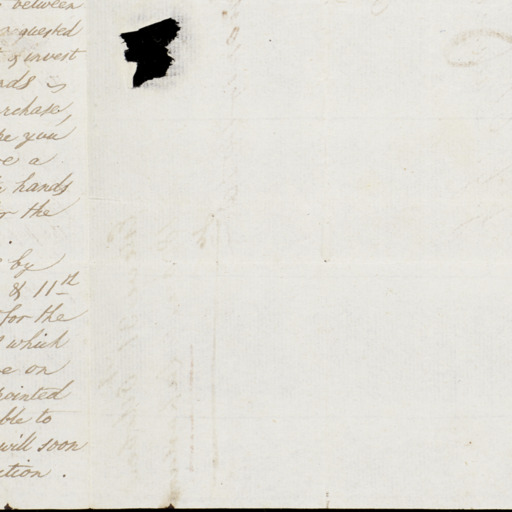 between
requested
& invest
nds
rchase
you
e a
hands
r the
by
& 11th
for the
which
e on
ointed
ble to
will soon
ction .